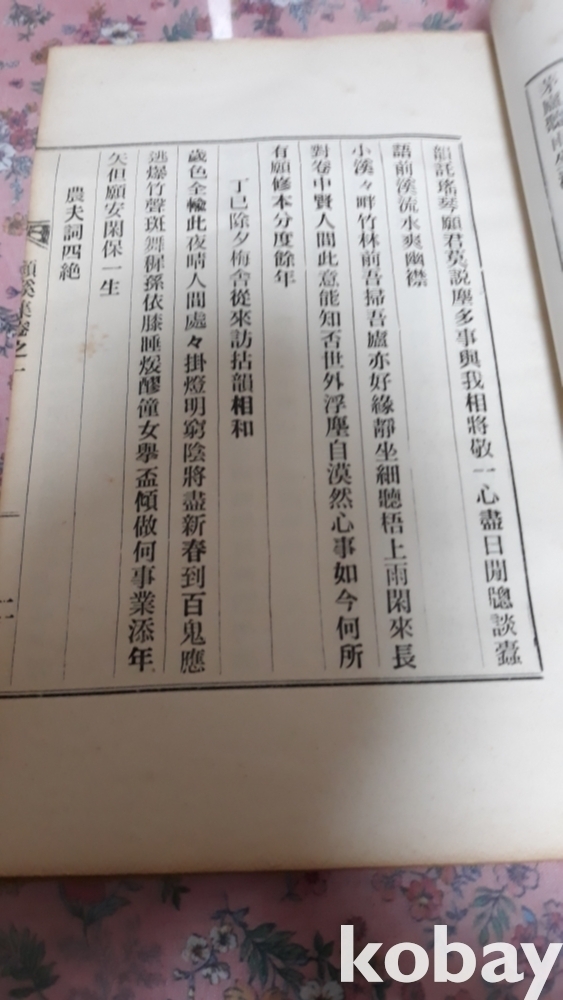 韻託瑤琴願君莫說塵多事與我相將敬一心盡日閒牕談蠹
語前溪流水爽幽襟
小溪々畔竹林前吾掃吾廬亦好緣靜坐細聽梧上雨閑來長
對卷中賢人間此意能知否世外浮塵自漠然心事如今何所
有願修本分度餘年
丁巳除夕梅舍從來訪拈韻相和
歲色全輸此夜晴人間處々掛燈明窮陰將盡新春到百鬼應
逃爆竹聲斑舞穉孫依膝睡煖醪僮女擧盃傾做何事業添年
矢但願安閑保一生
農夫詞四絶
集卷之一
kobay